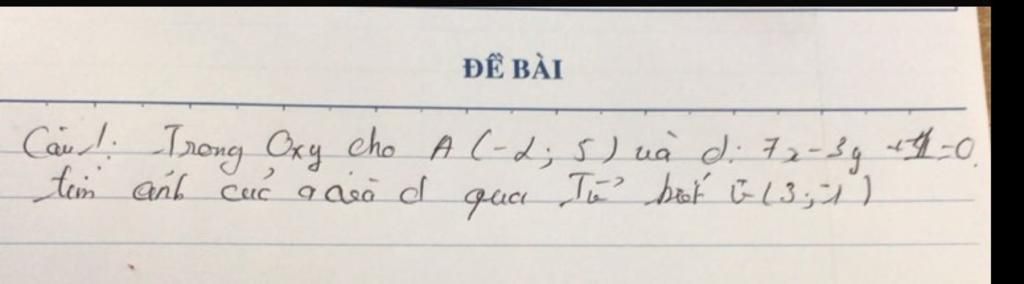 ĐỀ BÀI
Câu 1: Trong Oxy cho A (-2; 5) và d: 7x - 3y + 1 = 0.
tìm ảnh của A và d qua Tv biết v (3; -1)